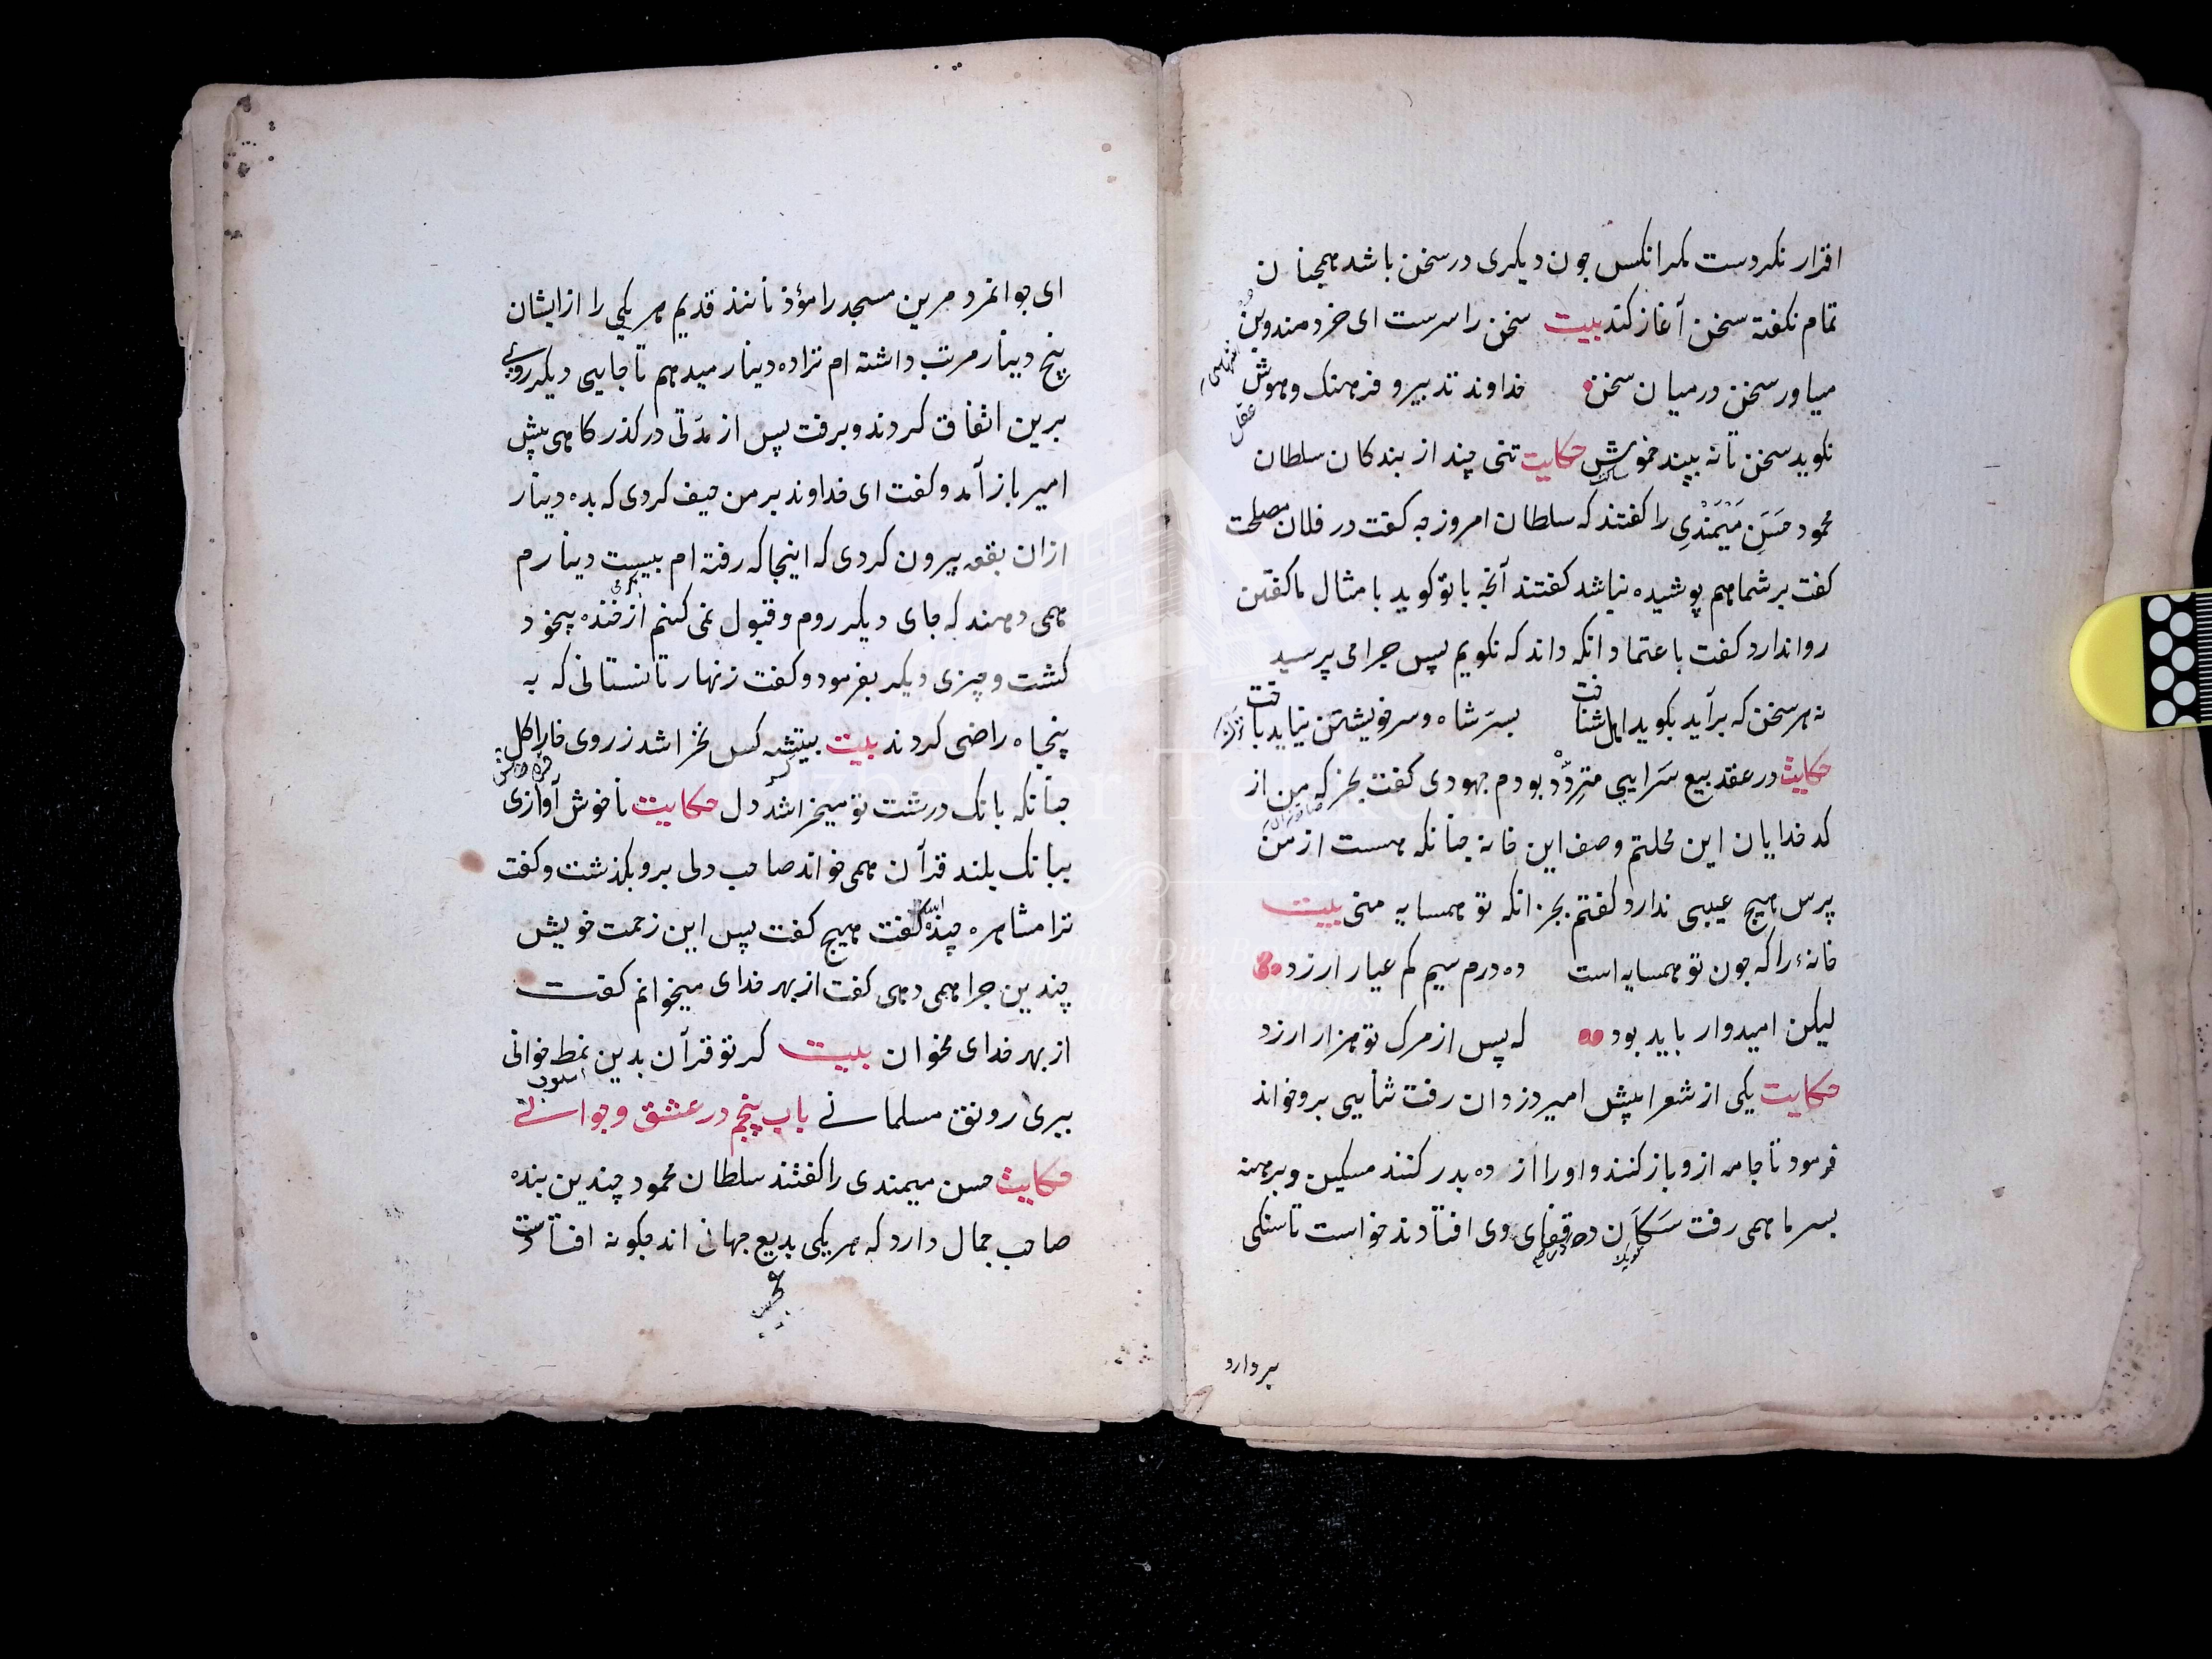 اقرار نکردست مکر انکس جون دیکری در سخن باشد همچنان
تمام نکفته سخن آغاز کند بیت سخن را سرست ای خردمند و بن
میاور سخن در میان سخن خداوند تدبیر و فرهنک و هوش
نکوید سخن تا نه بیند خموش حکایت تنی چند از بندکان سلطان
محمود حَسَنِ مَیْمَنْدِی را کفتند که سلطان امروز جه کفت در فلان مصلحت
کفت بر شما هم پوشیده نباشد کفتند آنچه با تو کوید با مثال ما کفتن
روا ندارد کفت باعتماد انکه داند که نکویم پس جرا می پرسید
نه هر سخن که برآید بکوید اهل شناخت بسرّ شاه و سر خویشتن نباید باخت
حکایت در عقد بیع سَرایی متردّد بودم جهودی کفت بخر که من از
کدخدایان این محلتم وصف این خانه جنانکه هست از من
پرس هیچ عیبی ندارد کفتم بجز انکه تو همسایه منی بیت
خانهٔ را که جون تو همسایه است ده درم سیم کم عیار ارزد
لیکن امیدوار باید بود که پس از مرک تو هزار ارزد
حکایت یکی از شعرا پیش امیر دزدان رفت ثنایی برو خواند
فرمود تا جامه ازو باز کنند و او را از ده بدر کنند مسکین و برهنه
بسرما همی رفت سَکَان ده در قفای وی افتادند خواست تا سنکی
بردارد
ای جوانمرد مرین مسجد را مؤذنانند قدیم هر یکی را از ایشان
پنج دینار مرتب داشته ام ترا ده دینار میدهم تا جایی دیکر روی
برین اتفاق کردند و برفت پس از مدّتی در کذر کاهی پیش
امیر باز آمد و کفت ای خداوند بر من حیف کردی که بده دینار
ازان بقعه بیرون کردی که اینجا که رفته ام بیست دینارم
همی دهند که جای دیکر روم و قبول نمی کنم از خنده بیخود
کشت و چیزی دیکر بفرمود و کفت زنهار تا نستانی که به
پنجاه راضی کردند بیت بیتشه کس نخراشد ز روی خارا کل
جنانکه بانک درشت تو میخراشد دل حکایت ناخوش آوازی
ببانک بلند قرآن همی خواند صاحب دلی برو بکذشت و کفت
ترا مشاهره چندست کفت هیچ کفت پس این زحمت خویش
چندین جرا همی دهی کفت از بهر خدای میخوانم کفت
از بهر خدای مخوان بیت کر تو قرآن بدین نمط خوانی
اسلوب
ببری رونق مسلمانی باب پنجم در عشق و جوانی
حکایت حسن میمندی را کفتند سلطان محمود چندین بنده
صاحب جمال دارد که هر یکی بدیع جهانی اند جکونه افتادست